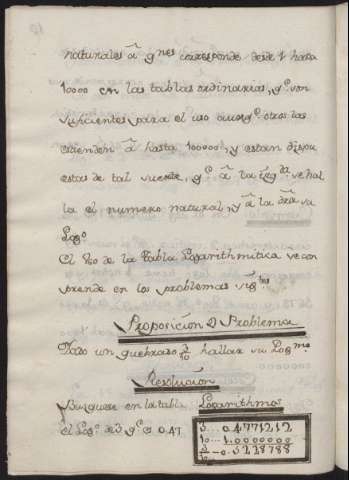 naturales â q̃ nes corresponde desde 1 hasta
10000 en las tablas ordinarias, q̃ son
suficientes para el uso aunq̃ otros las
estienden â hasta 100000, y estan dispu
estas de tal suerte, q̃ â la izq.da se hal
la el numero natural, y â la dra su
Log.o
El de la tabla Logarithmitica se con
prende en los problemas sig.tes
Proposicion 2 Problema
Dado un quebrado 3/10 hallar su Log.mo
Resolucion
Busquese en la tabla Logarithmo
el Log.o de 3 q̃ es 0.47
3... 0.4771212
10... 1.0000000
3/10 -0.5228788